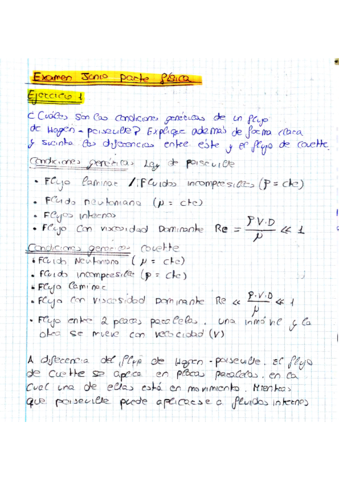 Examen Junio parte física
Ejercicio 1
¿ Cuáles son las condiciones genéricas de un flujo
de Hagen-poiseuille? Explique además de forma clara
y sucinta las diferencias entre éste y el flujo de couette.
Condiciones genéricas Ley de poiseuille
• Flujo laminar / Fluidos incompresibles (ρ = cte)
• Fluido newtoniano (μ = cte)
• Flujos internos
• Flujo con viscosidad Dominante Re = ρ·V·D / μ << 1
Condiciones genericas couette
• Fluido Newtoniano (μ = cte)
• Fluido incompresible (ρ = cte)
• Flujo laminar
• Flujo con viscosidad Dominante Re << ρ·V·D / μ << 1
• Flujo entre 2 placas paralelas, una inmóvil y la
otra se mueve con velocidad (V)
A diferencia del flujo de Hagen-poiseuille, el flujo
de Cuette se aplica en placas paralelas, en la
cual una de ellas está en movimiento. Mientras
que poiseuille puede aplicarse a fluidos internos